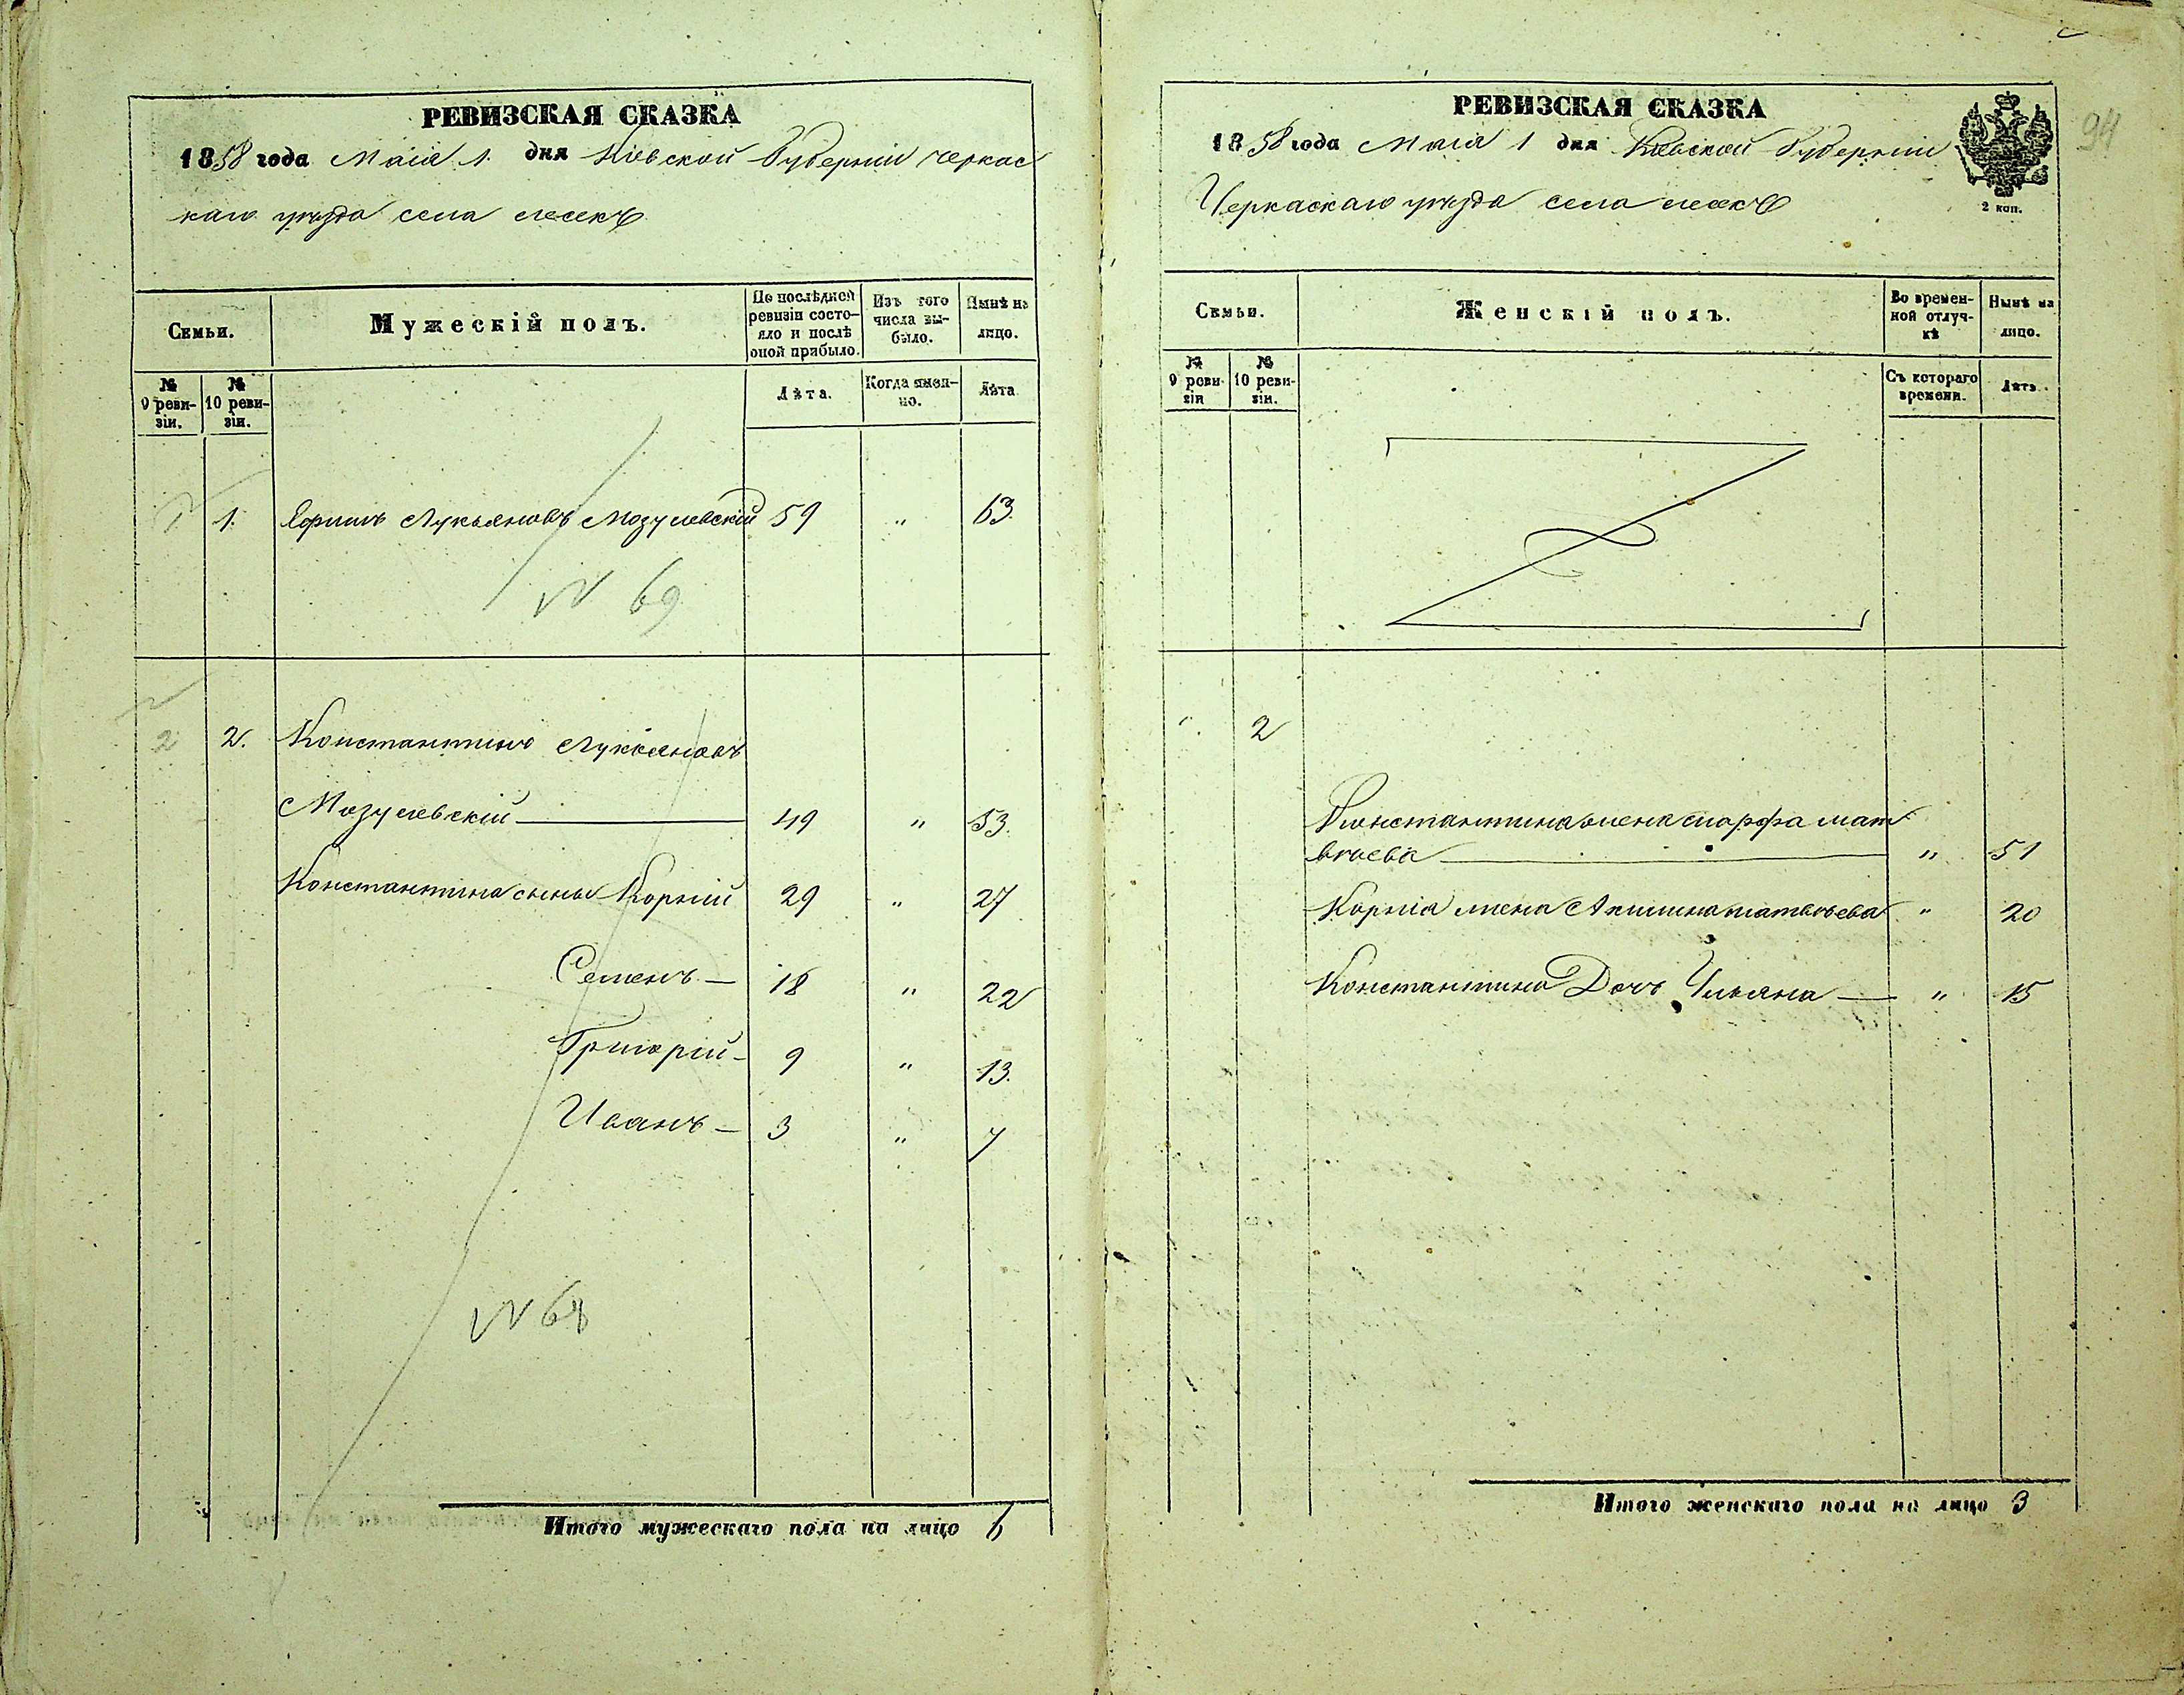 РЕВИЗСКАЯ СКАЗКА
1858 года Маія 1. дня Кіевской Губерніи Черкас
каго уѣзда села
Семьи.
Мужескій полъ.
По послѣдней ревизіи состо-
яло и послѣ оной прибыло.
Изъ того числа вы-
было.
Нынѣ на лицо.
№ 9 реви-
зіи.
№ 10 реви-
зіи.
Лѣта.
Когда имен-
но.
Лѣта
1 1. Ефимъ Лукьяновъ Мозулевскій 59 " 63.
N 69
2 2. Константинъ Лукьяновъ
Мозулевскій 49 " 53.
Константина сыны Корній 29 " 27
Семенъ 18 " 22
Григорій 9 " 13.
Иванъ 3 " 7
N 68
Итого мужескаго пола на лицо 6
РЕВИЗСКАЯ СКАЗКА
1858 года Маія 1 дня Кіевской Губерніи
Черкаскаго уѣзда села
2 коп.
94
Семьи.
Женскій полъ.
Во времен-
ной отлуч-
кѣ
Нынѣ на лицо.
№ 9 реви-
зіи
№ 10 реви-
зіи.
Съ котораго времени.
Лѣта.
" 2
Константина жена Марфа Мат
вѣева " 51
Корнія жена Акилина Матвѣева " 20
Константина Дочь Ульяна " 15
Итого женскаго пола на лицо 3